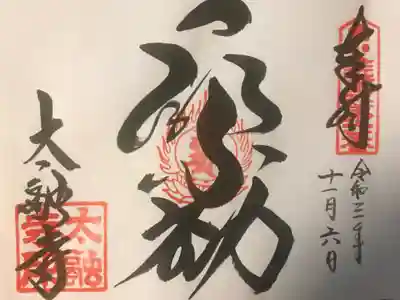 奉拝
令和三年
十一月六日
一願不動
太融寺
太融